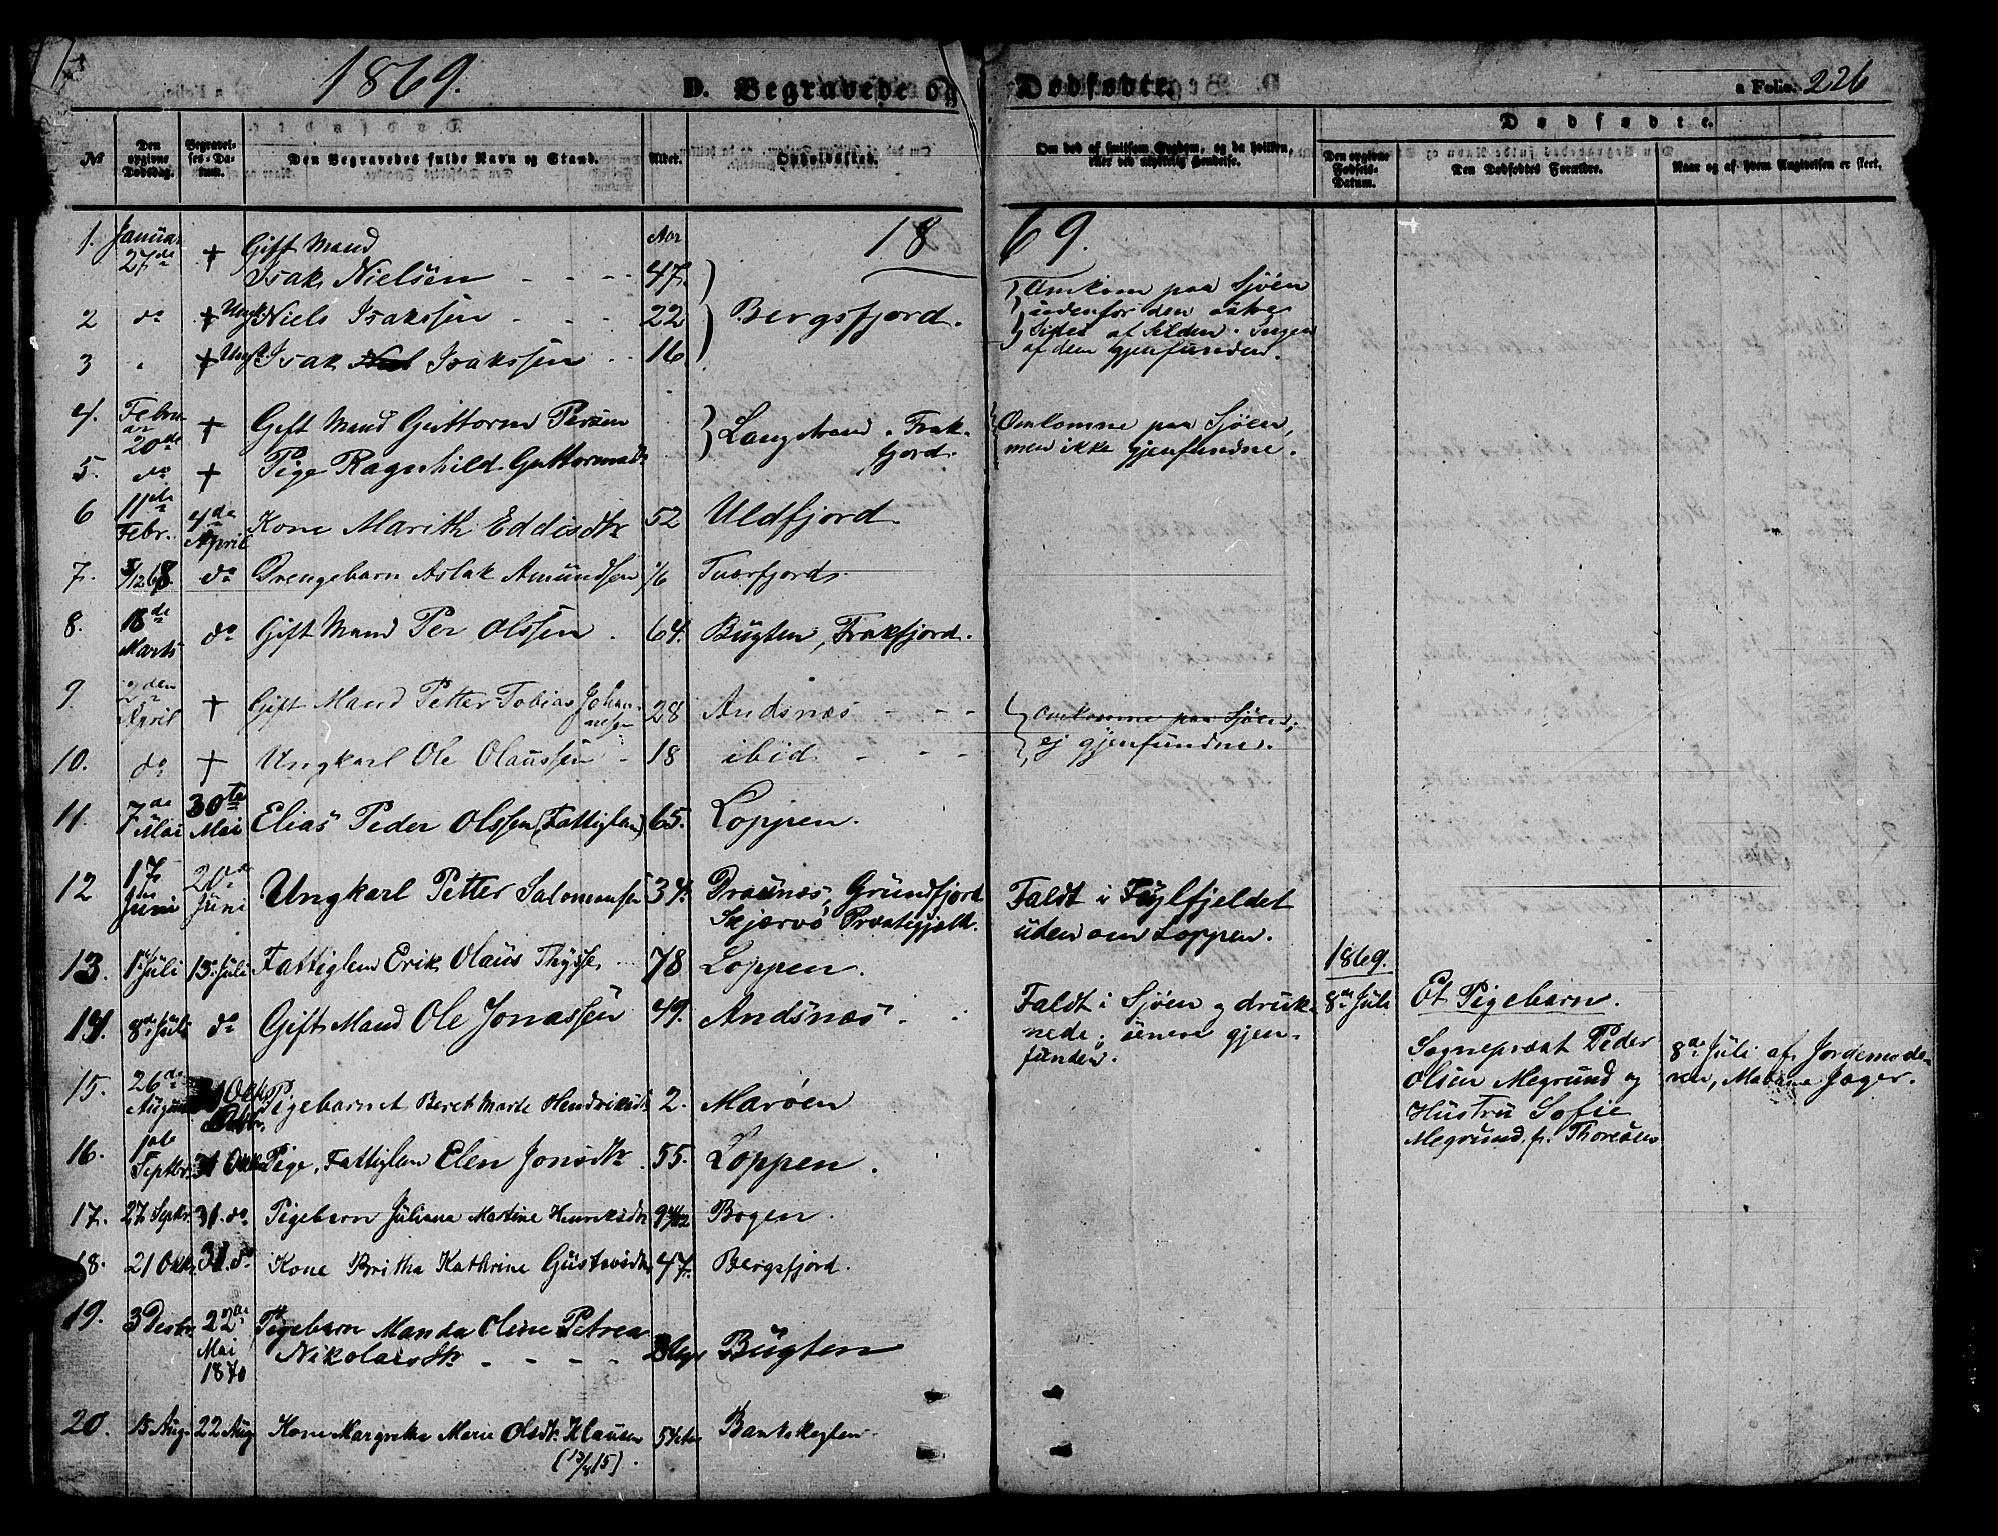 1869.
D. Begravede og Dødfødte.
a Folio. 226
No
Den opgivne Dødsdag.
Begravelses-Datum.
Den Begravedes fulde Navn og Stand.
Alder.
Opholdssted.
Om død af smitsom Sygdom, og da hvilken, eller ved ulykkelig Hændelse.
Dødfødte.
Den opgivne Fødsels-Datum.
Den Dødfødtes Forældre.
Naar og af hvem Angivelsen er skeet.
1869.
1. Januar 27de † Gift Mand Aar
Isak Nielsen - - - - 47.
2 do † Ungk. Niels Isakssen - - - 22 Bergsfjord.
3 " † Ungk. Isak Isakssen - 16
Omkom paa Sjøen
udenfor den
Side af Silden. Ingen
af dem gjenfunden.
4. Februar 20de † Gift Mand Guttorm Persen Langstrand, Frakfjord.
5. do † Pige Ragnhild Guttormsdr
Omkomne paa Sjøen,
men ikke gjenfundne.
6 11te Febr. 4de April Kone Marith Eddisdtr 52 Uldfjord.
7. 5/12 68 do Drengebarn Aslak Amundsen 1/6 Tverfjord.
8. 18de Marts do Gift Mand Per Olssen. 64. Bugten, Frakfjord.
9. 2den April † Gift Mand Petter Tobias Johannesen 28 Andsnæs - - -
10. do † Ungkarl Ole Olaussen - 18 ibid - - -
Omkomne paa Sjøen;
ej gjenfundne.
11. 7de Mai 30te Mai Elias Peder Olssen (Fattiglem) 65. Loppen.
12 17. Juni 20de Juni Ungkarl Petter Salomonsen 34. Draunæs, Grundfjord
Skjærvø Præstegjeld.
Faldt i Fuglfjeldet
uden om Loppen.
13. 1. Juli 15. Juli Fattiglem Erik Olaus Thysse 78 Loppen.
14. 8de Juli do Gift Mand Ole Jonassen 49. Andsnæs.
Faldt i Sjøen og druknede; senere gjenfunden.
1869.
8de Juli
Et Pigebarn.
Sognepræst Peder
Olsen Megrund og
Hustru Sofie
Megrund f. Thoresen
8de Juli af Jordemoderen, Madame Jæger.
15. 26de August 31 Oktbr. Pigebarnet Beret Marte Hendriksdtr 2. Marøen
16. 1ste Septbr. 31 Oktbr Pige, Fattiglem Elen Jonsdtr. 55. Loppen.
17. 27 Septbr. 31. do Pigebarn Juliana Martine Henriksdtr Bogen.
18. 21 Oktbr. 31. do Kone Britha Kathrine Gustavsdtr. 47. Bergsfjord.
19. 3 Desbr. 22de Mai 1870 Pigebarn Manda Oline Petrea
Nikolaisdtr - - - - Uger Bugten
20. 15 Aug. 22 Aug Kone Margretha Marie Olsdtr. Klausen
(13/4 15). Bankekeglen.